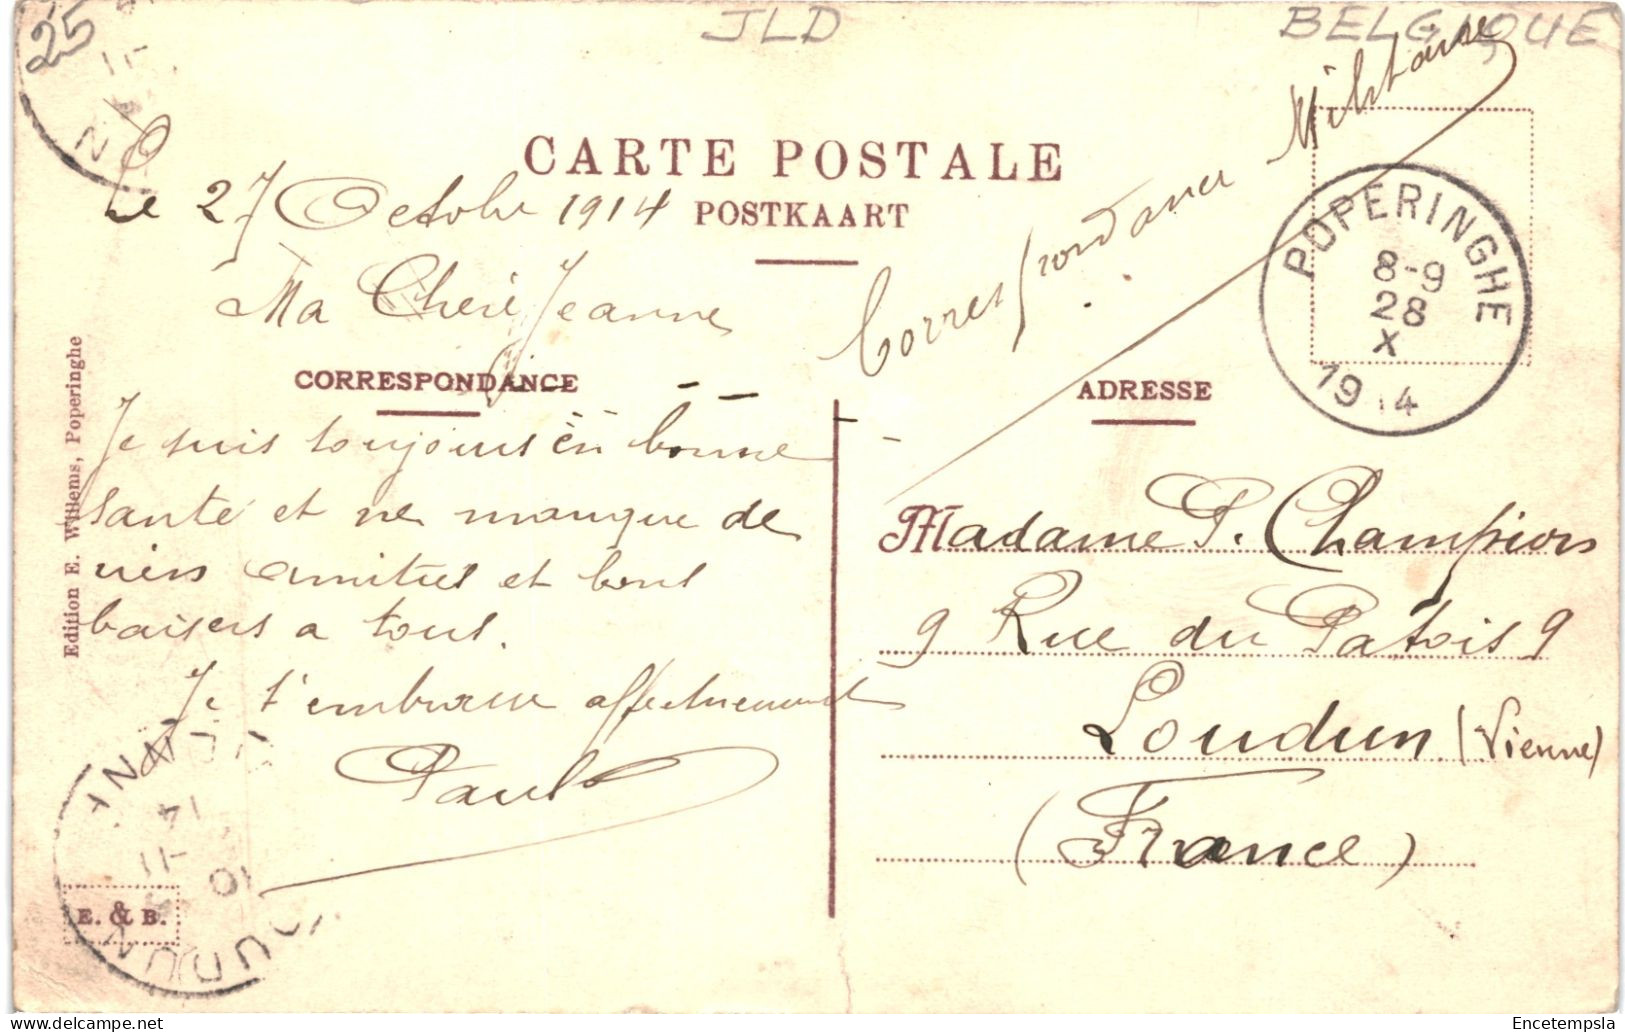 25
JLD
BELGIQUE
CARTE POSTALE
POSTKAART
Le 27 Octobre 1914
Ma Cheré Jeanne
Correspondance Militaire
POPERINGHE
8-9
28
X
1914
CORRESPONDANCE
ADRESSE
Je suis toujours en bonne
santé et ne manque de
rien amitiés et bons
baisers a tous.
Je t'embrasse affectueusement
Paul
Madame P. Champion
9 Rue du Patois 9
Loudun (Vienne)
(France)
Edition E. Willems, Poperinghe
E. & B.
LOUDUN
Encetempsla